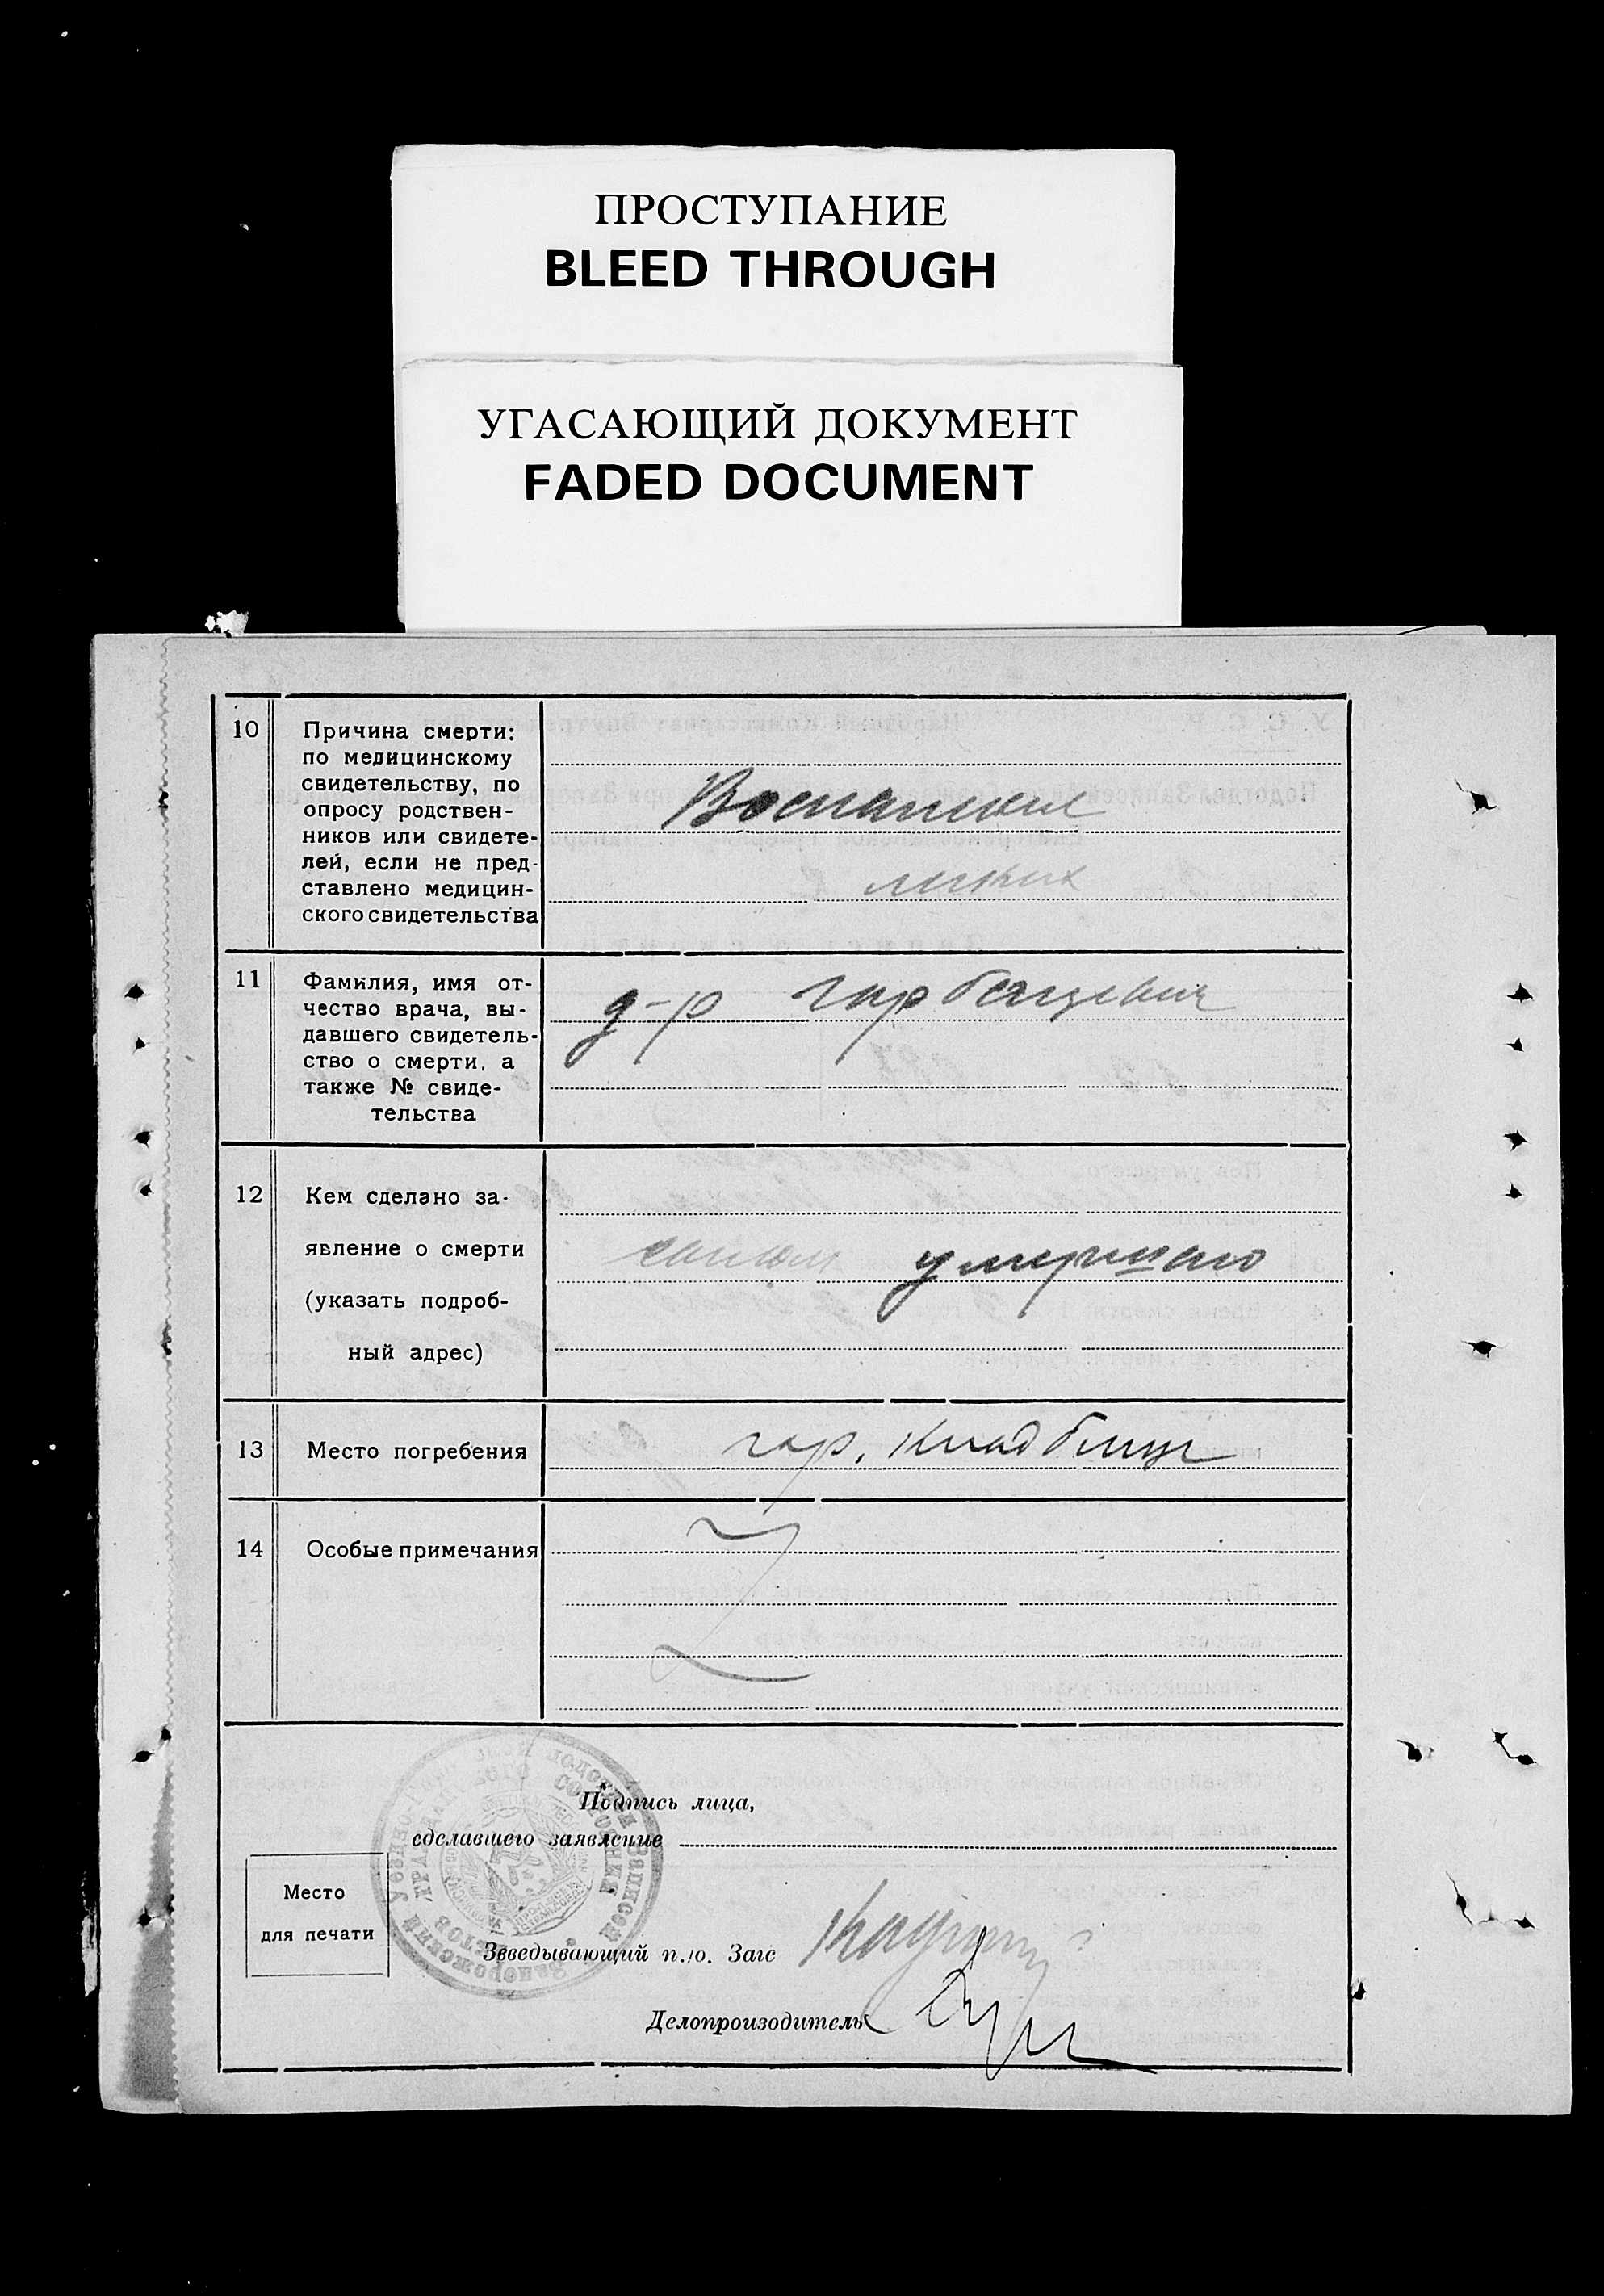 ПРОСТУПАНИЕ
BLEED THROUGH
УГАСАЮЩИЙ ДОКУМЕНТ
FADED DOCUMENT
10
Причина смерти:
по медицинскому
свидетельству, по
опросу родствен-
ников или свидете-
лей, если не пред-
ставлено медицин-
ского свидетельства
Воспаление
легких
11
Фамилия, имя от-
чество врача, вы-
давшего свидетель-
ство о смерти, а
также № свиде-
тельства
д-р
12
Кем сделано за-
явление о смерти
(указать подроб-
ный адрес)
умершаго
13
Место погребения
гор. кладбище
14
Особые примечания
Подпись лица,
сделавшего заявление
Место
для печати
Зеведывающий п./о. Загс
Делопроизводитель